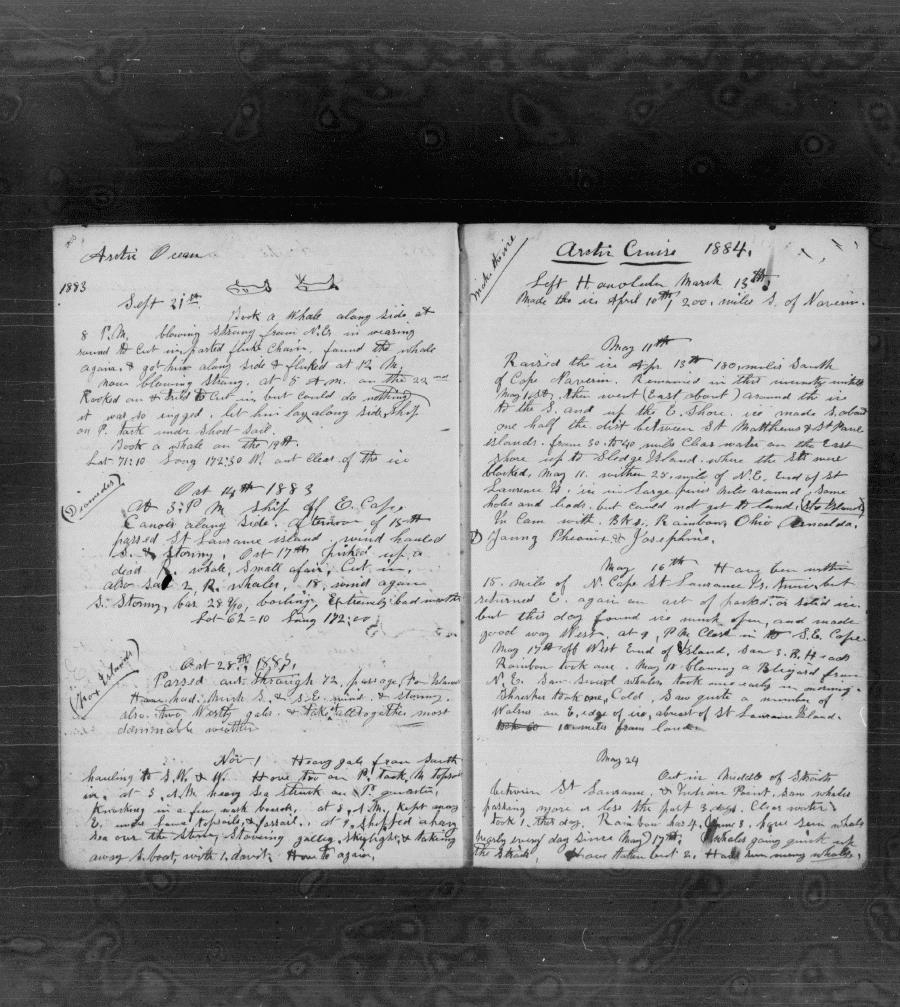 Arctic Ocean
1883
Sept 21st
Took a Whale along side at
8 P.M. blowing strong from N.E. in wearing
round to cut in, parted fluke chain, found the whale
again, & got him along side & fluked at 12 M.
now blowing strong. at 5 A.M. on the 22nd
Hooked on & tried to cut in, but could do nothing
it was so rugged. let him lay along side, Ship
on P. tack under short sail.
Took a whale on the 19th
Lat 71:10 Long 172:30 W. and clear of the ice
(Diomides)
Oct 14th 1883
At 5: P M Ship off E. Cape,
Canoes along side. afternoon of 15th
passed St Lawrance island, wind hauled
S. & Stormy. Oct 17th picked up a
dead R. whale, small afair, Cut in,
also saw 2 R. whales. 18, wind again
S. Stormy, bar 28 boiling, Extremely bad weather
Lat 62=10 Long 172:00
(Fox Islands)
Oct 28th 1883,
Passed out through 72, passage, Fox Islands
Have had. Much S. & S.E. wind. & stormy
also. two West gales. & take it alltogether most
dammable weather
Nov 1 Heavy gale from South
hauling to S.W. & W. Hove too on P. tack, M topsail
in. at 3, A.M heavy sea struck on P. quarter,
Knocking in a few work bench, at 5, A.M. kept away
E. under lower topsails, & forsail. at 9, shipped a heavy
sea over the Stern, Staveing galley, skylight, & taking
away S. boat, with 1. davit; Hove to again.
Make the ice
Arctic Cruise 1884.
Left Honolulu March 13th,
Made the ice April 10th, 200. miles S. of Naverin.
May 11th
Raised the ice Apr 13th 180, miles South
of Cape Naverin. Remained in this vicinity untill
May 1st, then went (East about) around the ice
to the S. and up the E. Shore. ice made S. about
one half the dist between St Matthews & St Paul
islands. from 30. to 40 miles Clear water on the East
shore up to Sledge Island. where the Sts were
blocked, May 11. within 25. mile of N.E. End of St
Lawrence Is. in in large fields miles around, some
holes and leads, but could not get to land. (Sto Island)
In Cam with. Bks. Rainbow, Ohio
Young Pheonix & Josephine.
May 16th Have ben within
15. mile of N. Cape St Lawrance Is. but
returned E. again on act of packed or solid ice.
but this day found ice much open, and made
good way West. at 9, P.M. Close in to S.E. Cape.
May 17th off West End of Island, saw 3. B. Heads
Rainbow took one. May 18 blowing a Blizard from
N. E. Saw Several whales took one early in morning.
Thrasher took one, Cold. Saw quite a number of
Walrus on E. edge of ice, abreast of St Lawrance Island.
10 miles from land
May 24
Out in Middle of Straits
between St Lawrance, & Indian Point. saw whales
passing more or less the past 3, days. Clear water
took 1. this day, Rainbow has 4, have seen whales
nearly every day since May 17th; Whales going quick up
the Straits, I have taken but 2. Have seen many whales,